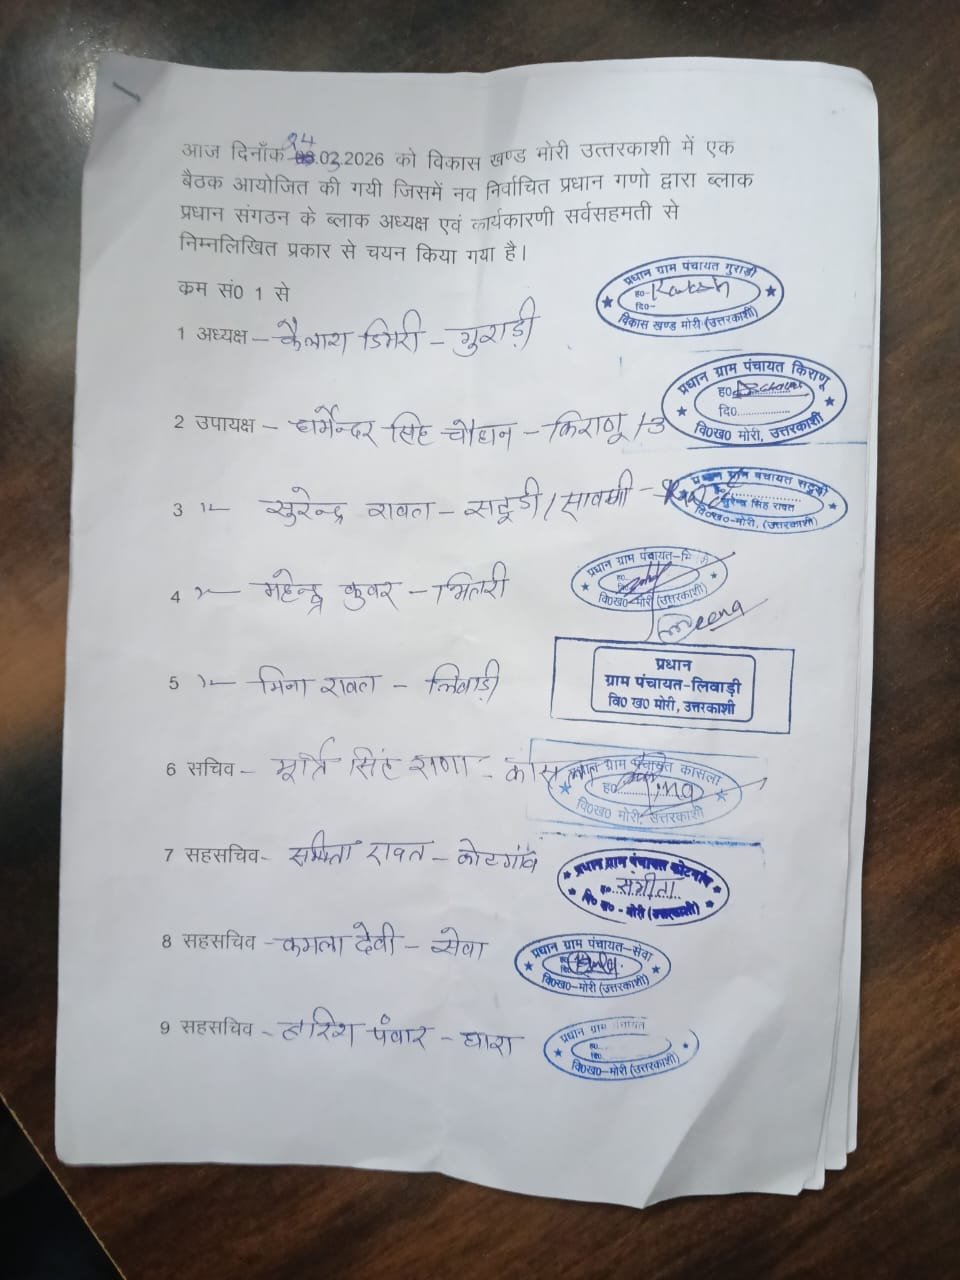 आज दिनाँक 24.03.2026 को विकास खण्ड मोरी उत्तरकाशी में एक
बैठक आयोजित की गयी जिसमें नव निर्वाचित प्रधान गणो द्वारा ब्लाक
प्रधान संगठन के ब्लाक अध्यक्ष एवं कार्यकारणी सर्वसहमती से
निम्नलिखित प्रकार से चयन किया गया है।
कम सं0 1 से
प्रधान ग्राम पंचायत गुराड़ी
ह0-
दि0-
विकास खण्ड मोरी (उत्तरकाशी)
1 अध्यक्ष – कैलाश डिमरी – गुराड़ी
प्रधान ग्राम पंचायत किराणू
ह0
दि0..................
वि0ख0 मोरी, उत्तरकाशी
2 उपायक्ष – धर्मेन्दर सिंह चौहान – किराणू
प्रधान ग्राम पंचायत सटूडी
सुरेन्द्र सिंह रावत
वि0ख0-मोरी, (उत्तरकाशी)
3 सुरेन्द्र रावत – सटूडी /
प्रधान ग्राम पंचायत-
वि0ख0-मोरी (उत्तरकाशी)
4 महेन्द्र कुवर – भितरी
Meena
प्रधान
ग्राम पंचायत-लिवाड़ी
वि0 ख0 मोरी, उत्तरकाशी
5 मिना रावत – लिवाड़ी
प्रधान ग्राम पंचायत कासला
ह0
वि0ख0 मोरी, उत्तरकाशी
6 सचिव – मूर्ति सिंह राणा –
7 सहसचिव- रावत – कोटगांव
प्रधान ग्राम पंचायत कोटगांव
ह0 संगीता
वि0 ख0 - मोरी (उत्तरकाशी)
8 सहसचिव – कमला देवी – सेवा
प्रधान ग्राम पंचायत-सेवा
वि0ख0-मोरी (उत्तरकाशी)
9 सहसचिव – हरिश पंवार – धारा
प्रधान ग्राम पंचायत
ह0
दि0
वि0ख0-मोरी (उत्तरकाशी)